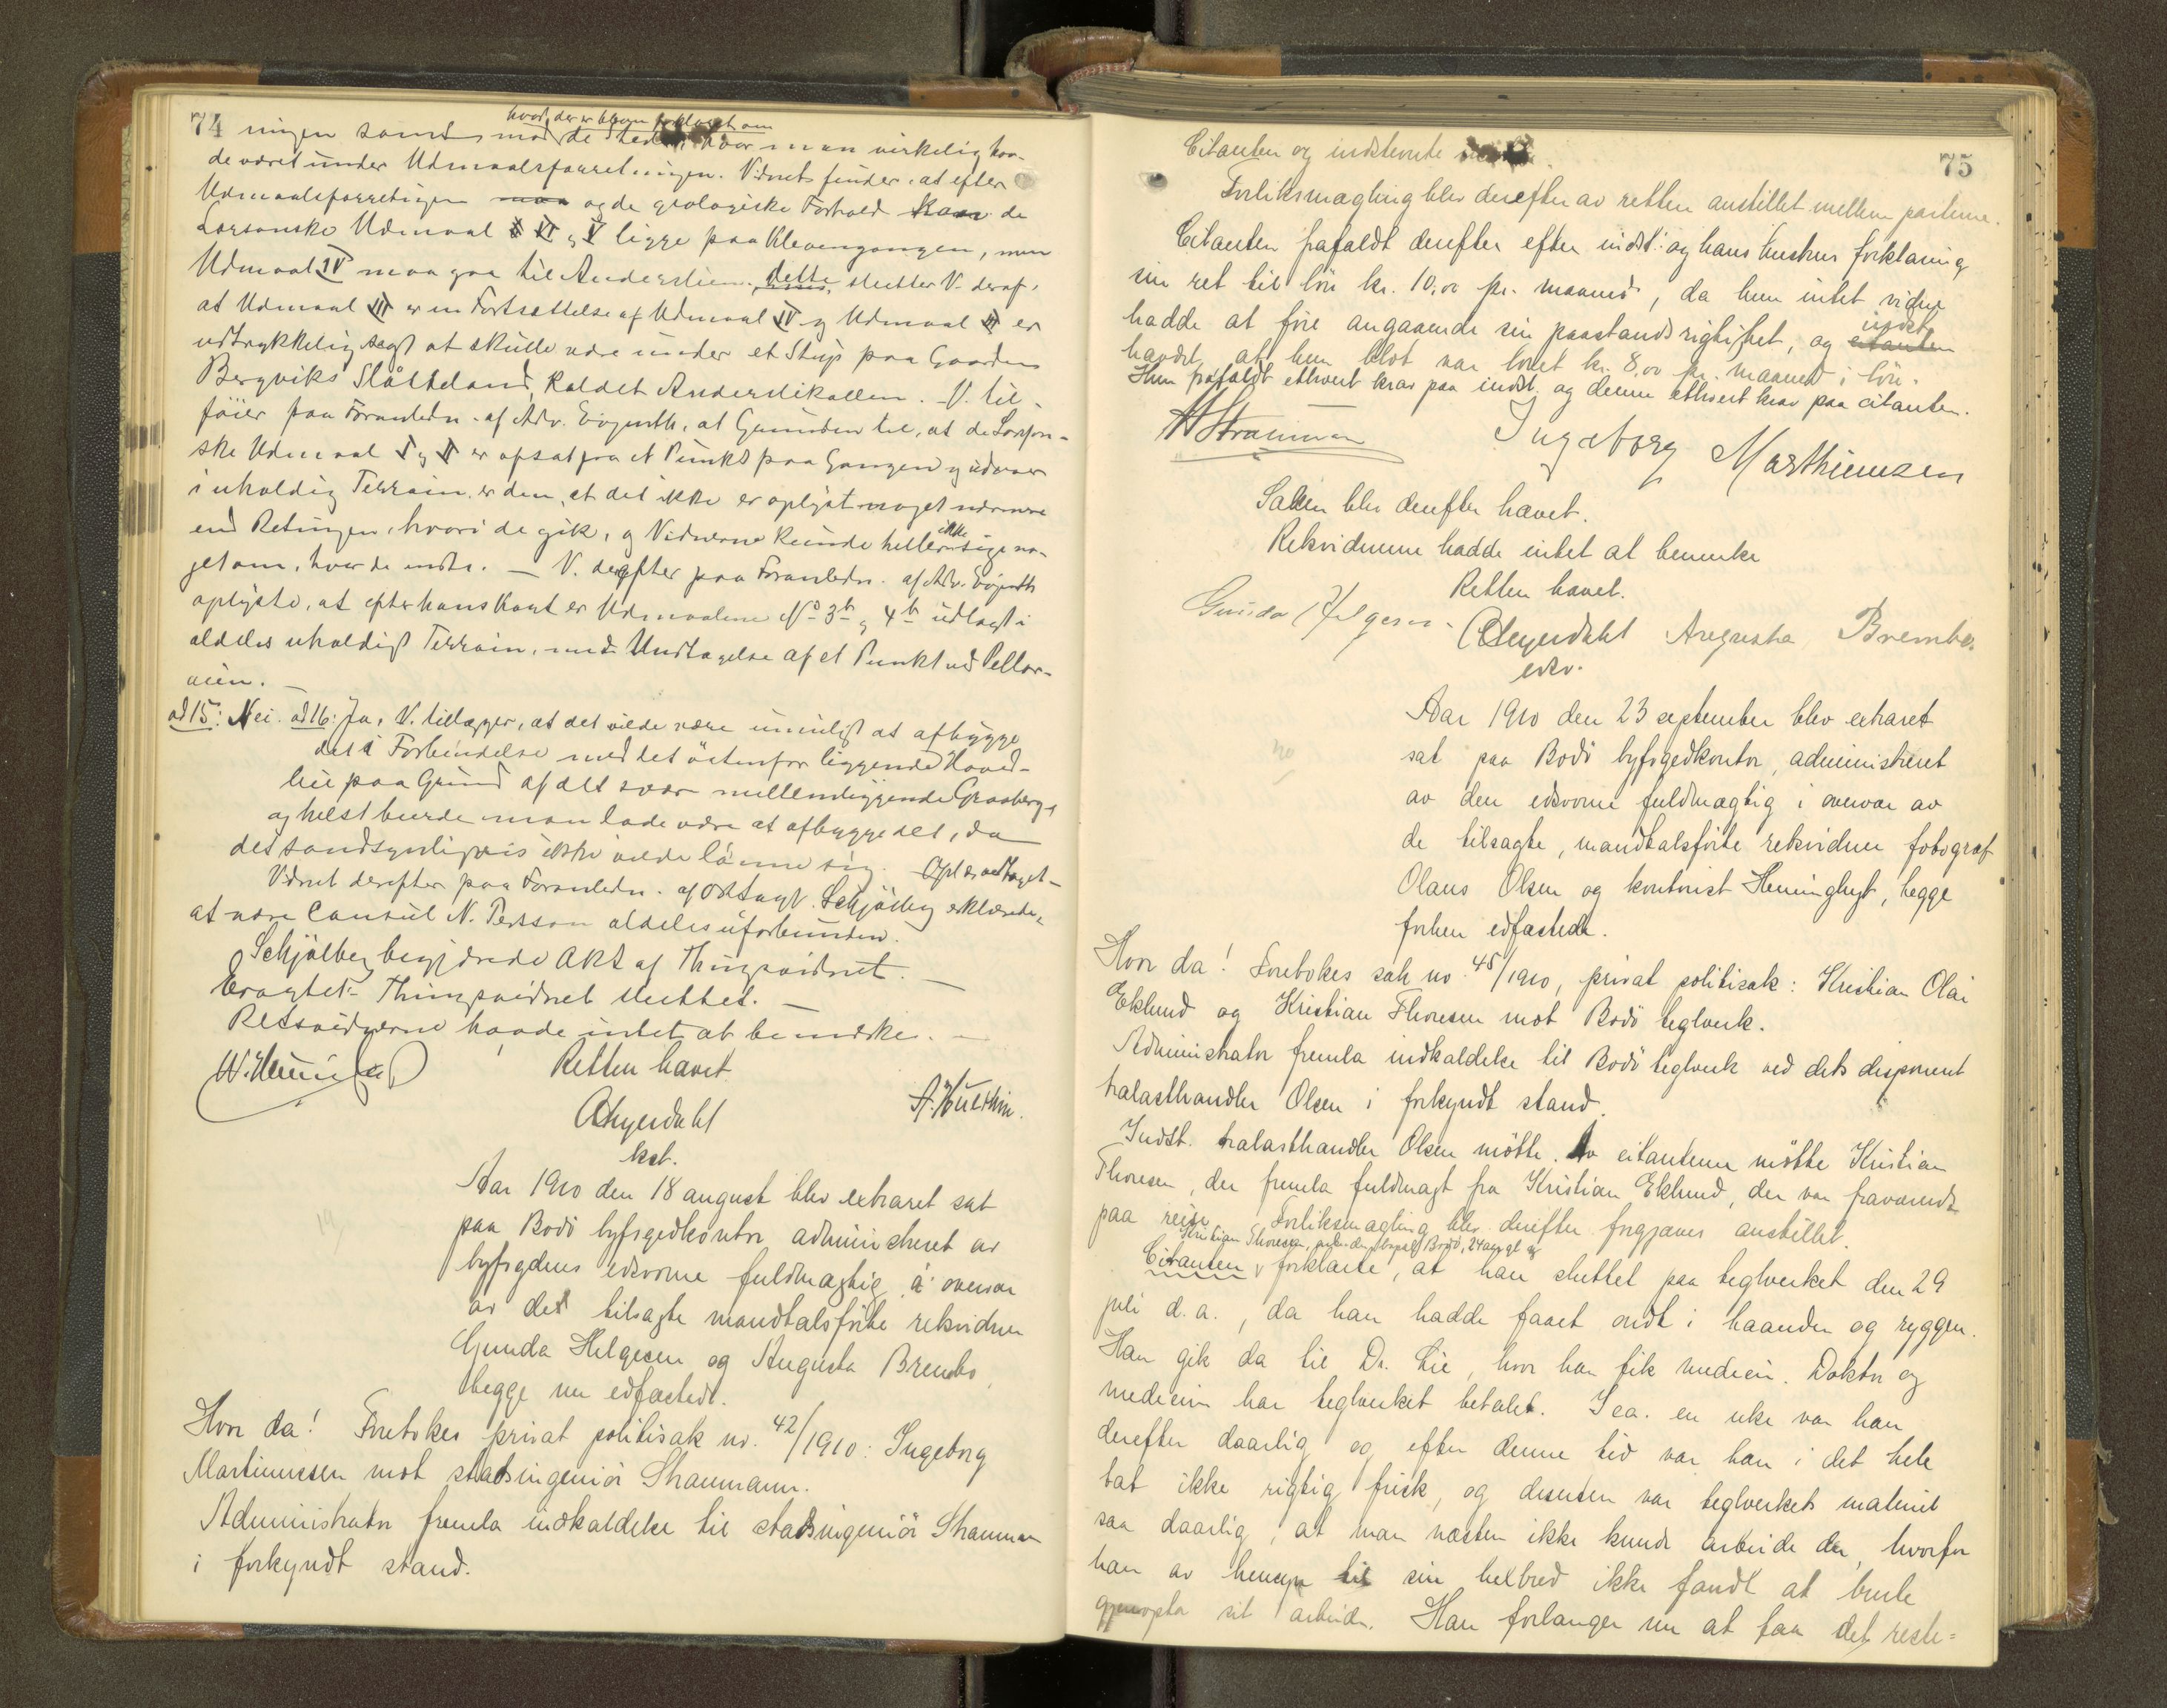 74
hvad der er bleven forklaret om
ningen samt mod de Steder, hvor man virkelig hav-
de været under Udmaalsforretningen. Vidnet finder, at efter
Udmaalsforretningen og de geologiske Forhold kan de
Larsonske Udmaal VI og V ligge paa Klevengangen, men
Udmaal IV maa gaa til Anderslien, dette slutter V. deraf,
at Udmaal III er en Fortsættelse af Udmaal IV og Udmaal er
udtrykkelig sagt at skulle være under et Stup paa Gaarden
Bergviks Slåtteland, kaldet Anderslikollen. V. til-
föier paa Foranledn. af Adv. Evjenth, at Grunden til, at de Larson-
ske Udmaal I og II er afsat fra et Punkt paa Gangen og udover
i uholdig Terrain, er den, at det ikke er oplyst noget nærmere
end Retningen, hvori de gik, og Vidnerne kunde heller ikke sige no-
get om, hvor de endte. — V. derefter paa Foranledn. af Adv. Evjenth
oplyste, at efter hans Kart er Udmaalene No 3b og 4b udlagt i
aldeles uholdigt Terrain, med Undtagelse af et Punkt ved Pellar-
veien. —
ad 15: Nei. ad 16: Ja, V. tillægger, at det vilde være umuligt at afbygge
det i Forbindelse med det östenfor liggende Hoved-
lin paa Grund af alt svær mellemliggende Graaberg,
og helst burde man lade være at afbygge det, da
det sandsynligvis ikke vilde lönne sig. Opl. vedtaget —
Vidnet derefter paa Foranledn. af ORSagf. Schjölberg erklærede
at være Consul N. Persson aldeles uforbunden.
Schjölberg begjærede Akt af Thingsvidnet. —
Eragtet: Thingsvidnet sluttet. —
Retsvidnerne havde intet at bemærke. —
Retten hævet.
A Hyerdahl
kst.
19
Aar 1910 den 18 august blev extraret sat
paa Bodö byfogedkontor administreret av
byfogdens edsvorne fuldmægtig i overvær
av de tilsagte mandtalsförte retsvidner
Gunda Helgesen og Augusta Brembo,
begge nu edfæstede.
Hvor da! Foretokes privat politisak nr. 42/1910: Ingeborg
Martinussen mot stadsingeniör Straumann.
Administrator fremla indkaldelse til stadsingeniör Strauman
i forkyndt stand.
75
Citanten og indstevnte
Forliksmægling blev derefter av retten anstillet mellem parterne.
Citanten frafaldt derefter efter indst. og hans hustrus forklaring
sin ret til lön kr. 10,00 pr. maaned, da hun intet vidne
hadde at före angaaende sin paastands rigtighet, og citanten indst.
hævdet, at hun blot var lovet kr. 8,00 pr. maaned i lön.
Hun frafaldt ethvert krav paa indst. og denne ethvert krav paa citanten.
Straumann
Ingeborg Marthiemsen
Saken blev derefter hævet.
Retsvidnerne hadde intet at bemerke
Retten hævet.
Gunda Helgesen. A Hyerdahl Augusta Brembo.
edsv.
20
Aar 1910 den 23 september blev extraret
sat paa Bodö byfogedkontor, administreret
av den edsvorne fuldmægtig i overvær av
de tilsagte, mandtalsförte retsvidner fotograf
Olaus Olsen og kontorist Henninghuyt, begge
forhen edfæstede.
Hvor da! Foretokes sak no. 45/1910, privat politisak: Kristian Olai
Eklund og Kristian Thoresen mot Bodö teglverk.
Administrator fremla indkaldelse til Bodö teglverk ved dets disponent
trælasthandler Olsen i forkyndt stand.
Indst. trælasthandler Olsen mötte. Av citanterne mötte Kristian
Thoresen, der fremla fuldmagt fra Kristian Eklund, der var fraværende
paa reise. Forliksmægling blev derefter forgjæves anstillet.
Kristian Thoresen, Bodö, 24 aar gl
Citanten forklarte, at han sluttet paa teglverket den 29
juli d.a., da han hadde faaet ondt i haanden og ryggen.
Han gik da til Dr. Lie, hvor han fik medicin. Doktor og
medicin har teglverket betalt. I ca. en uke var han
derefter daarlig og efter denne tid var han i det hele
tat ikke rigtig frisk, og desuten var teglverkets materiel
saa daarlig, at man næsten ikke kunde arbeide der, hvorfor
han av hensyn til sin helbred ikke fandt at burde
gjenopta sit arbeide. Han forlanger nu at faa det reste=